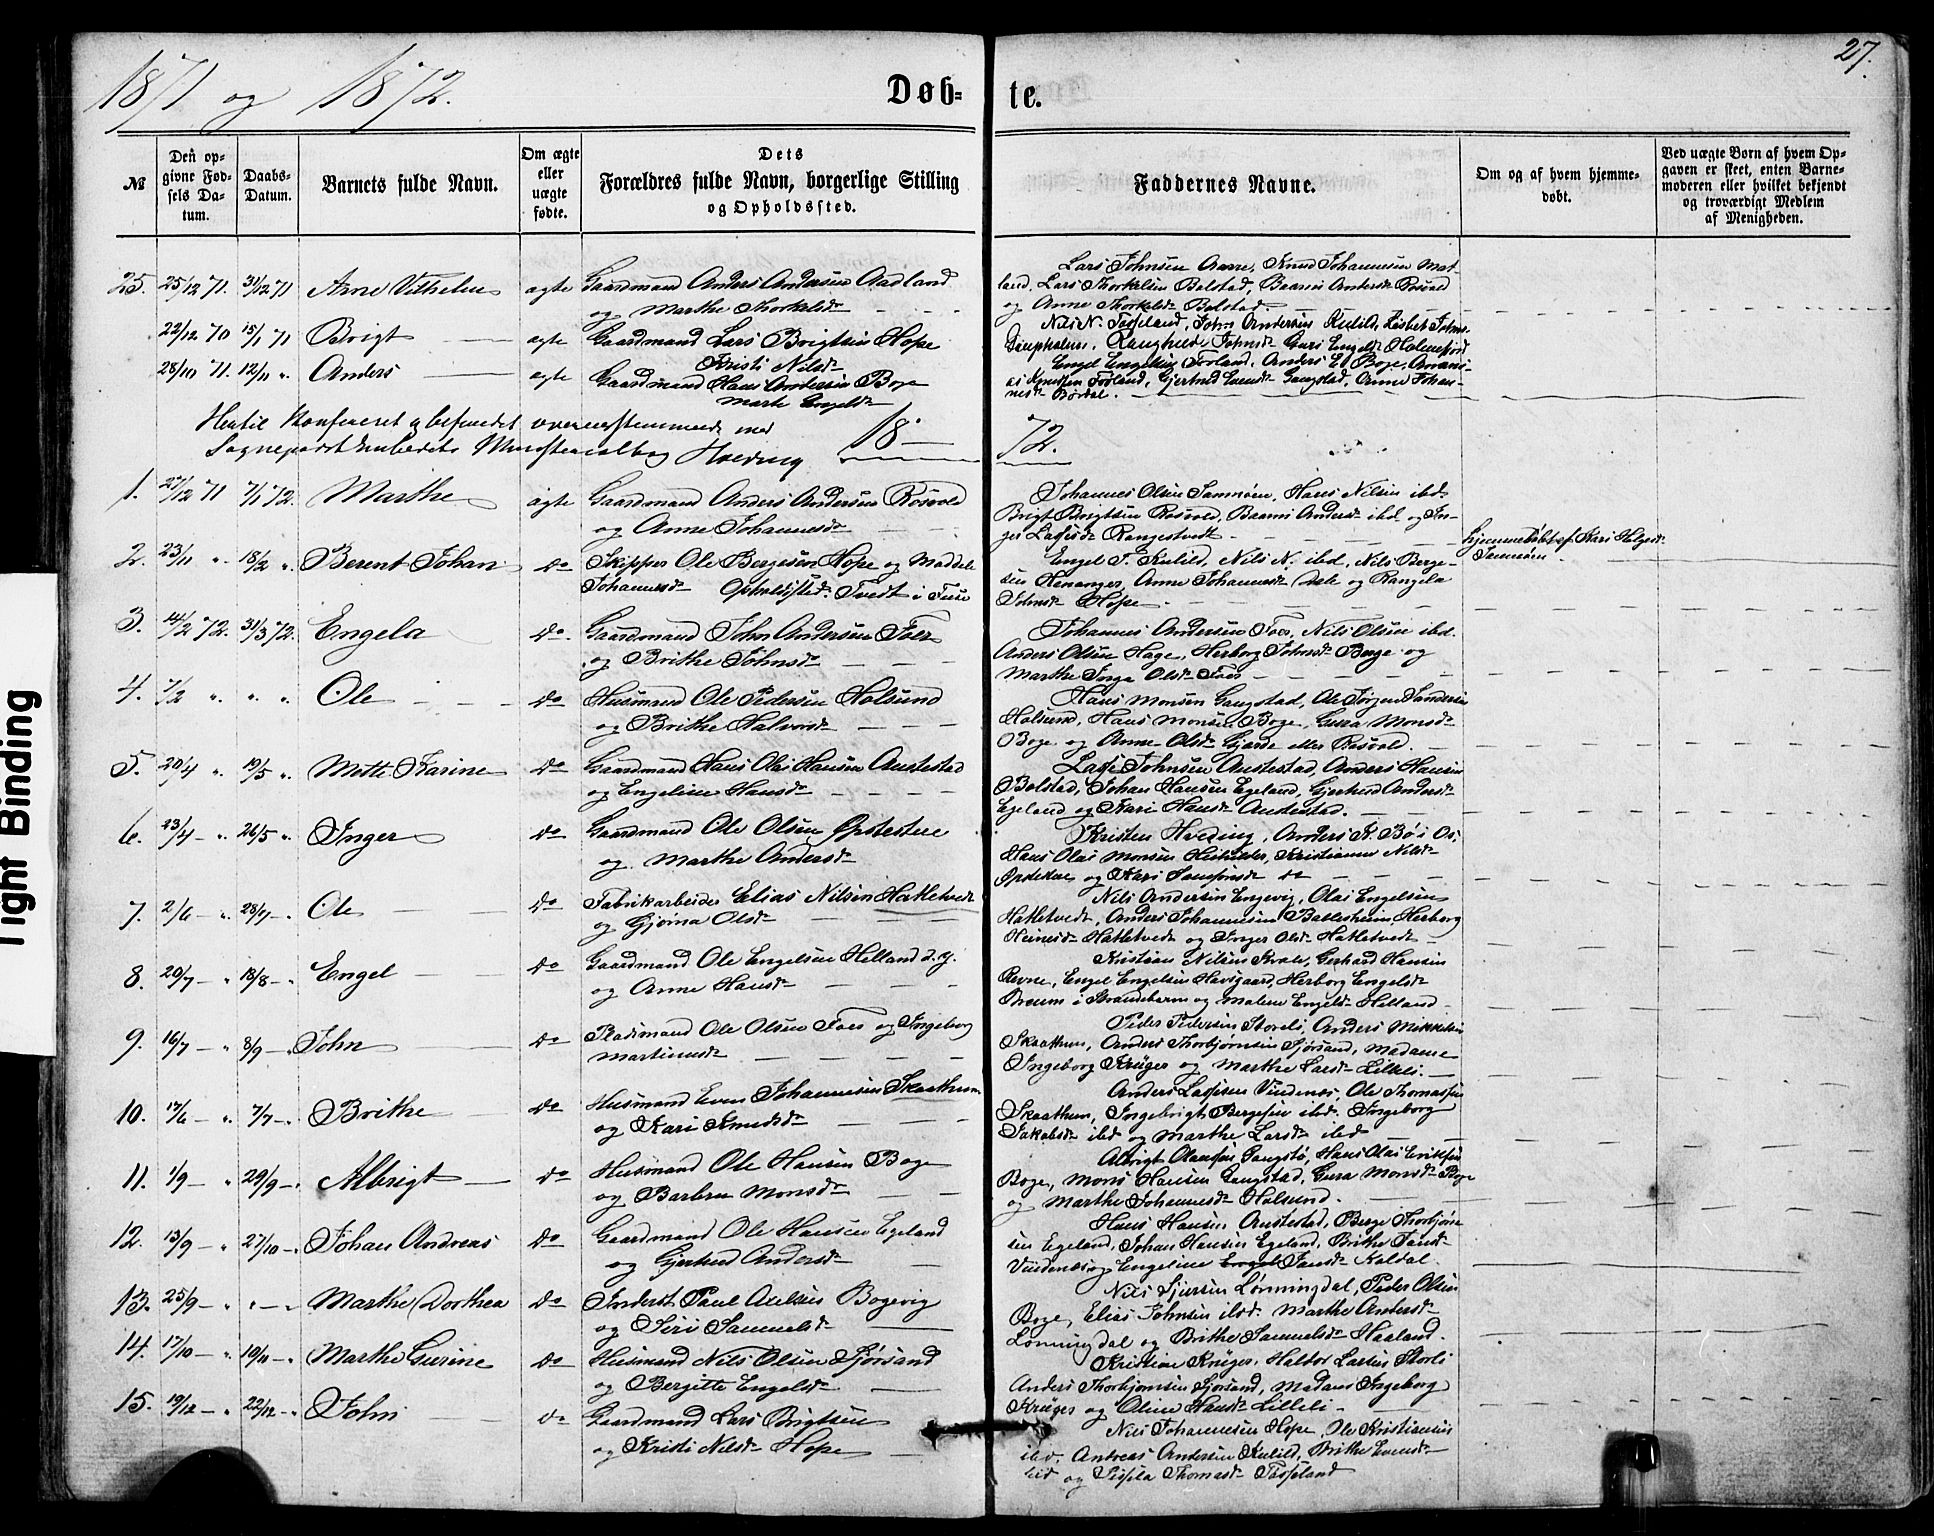 27.
1871 og 1872.
Døb-
te.
№
Den op-
givne Fød-
sels Da-
tum.
Daabs-
Datum.
Barnets fulde Navn.
Om ægte
eller
uægte
fødte.
Dets
Forældres fulde Navn, borgerlige Stilling
og Opholdssted.
Faddernes Navne.
Om og af hvem hjemme-
døbt.
Ved uægte Børn af hvem Op-
gaven er skeet, enten Barne-
moderen eller hvilket bekjendt
og troværdigt Medlem
af Menigheden.
25. 25/12 71. 31/12 71 Arne Vilhelm ægte Gaardmand Anders Andersen Aadland
og Marthe Thorkelsdr
Lars Johnsen Aarre, Knud Johannesen Mat-
land, Lars Thorkelsen Bolstad, Andersdr Røsvold
og Anne Thorkelsdr Bolstad.
22/12 70 15/1 71 Brigt ægte Gaardmand Lars Brigtsen Hope
Kristi Nilsdr
Nils N. Tøsseland, John Andersen Kulild, Lisbet Johns-
Ranghild Johnsdr Guri Engelsdr Holmefjord
28/10 71. 12/11 " Anders ægte Gaardmand Hans Andersen Boge
Marte Engelsdr
Engel Engelsen Førland, Anders El Boge,
Knudsen Førland, Gjertrud Evensdr Gangstad, Anne Johan-
nesdr Børdal.
Hertil konfereret og befundet overensstemmende med
Sognepræstembedets Ministerialbog Hveding
18 72.
1. 27/12 71 7/1 72. Marthe ægte Gaardmand Anders Andersen Røsvold
og Anne Johannesdr
Johannes Olsen Samnøen, Hans Nilsen ibd
Brigt Brigtsen Røsvold, Andersdr ibd og In-
ger Lassesdr Rangestvedt
2. 23/11 " 18/2 " Berent Johan do Skipper Ole Bergesen Hope og Maddele
Johannesdr Opholdsted: Tvedt i Fuse
Engel J. Kulild, Nils N. ibd, Nils Berge-
sen Henanger, Anne Johannesdr Dale og Rangela
Johnsdr Hope.
hjemmedøbt af Kari Helgesdr
Samnøen.
3. 14/2 72. 31/3 72. Engela do. Gaardmand John Andersen Foer
og Brithe Johnsdr
Johannes Andersen Foer, Nils Olsen ibd.
Anders Olsen Hage, Herborg Johnsdr Berge og
Marthe Olsdr Foer
4. 7/2 " " " Ole do Husmand Ole Pedersen Holsund
og Brithe Halvorsdr
Hans Monsen Gangstad, Ole Jørgen Sandersen
Holsund, Hans Monsen Boge, Gura Monsdr
Boge og Anne Olsdr Gjærde eller Røsvold.
5. 20/4 " 19/5 " Mette Karine do Gaardmand Hans Olai Hansen Austestad
og Engeline Hansdr
Lasse Johnsen Austestad, Anders Hansen
Bolstad, Johan Hansen Egeland, Gjertrud Andersdr
Egeland og Kari Hansdr Austestad.
6. 23/4 " 26/5 " Inger do Gaardmand Ole Olsen Opstestue
og Marthe Andersdr
Kristen Hveding, Anders A. Bø i Os,
Hans Olai Monsen, Kristianne Nilsdr
og Kari Samsonsdr do
7. 2/6 " 28/7 " Ole do Fabrikarbeider Elias Nilsen Hatletvedt
og Gjøna Olsdr
Nils Andersen Engevig, Olai Engelsen
Hatletvedt, Anders Johannesen Baldersheim, Herborg
Heinesdr Hatletvedt og Inger Olsdr Hatletvedt
8. 20/7 " 18/8 " Engel do Gaardmand Ole Engelsen Helland d.y.
og Anne Hansdr
Kristian Nilsen Kvale, Gerhard Hansen
Revne, Engel Engelsen Havsgaard, Herborg Engelsdr
Drøum i Strandebarm og Malene Engelsdr Helland
9. 16/7 " 8/9 " John do Pladsmand Ole Olsen Foer og Ingeborg
Martinusdr
Peder Pedersen Storeli, Anders Mikkelsen
Skaathun, Anders Thorbjørnsen Sjørsand, Madame
Ingeborg Krüger og Marthe Larsdr Lilleli.
10. 17/6 " 7/7 " Brithe do Husmand Even Johannesen Skaathun
og Kari Knudsdr
Anders Lassesen Vindenes, Ole Thomassen
Skaathun, Ingebrigt Bergesen ibd. Ingeborg
Jakobsdr ibd og Marthe Larsdr ibd
11. 1/9 " 29/9 " Albrigt do Husmand Ole Hansen Boge
og Barbra Monsdr
Albrigt Gangstø, Hans Olai Eriksen
Boge, Mons Hansen Gangstad, Gura Monsdr Boge
og Marthe Johannesdr Holsund.
12. 13/9 " 27/10 " Johan Andreas do Gaardmand Ole Hansen Egeland
og Gjertrud Andersdr
Hans Hansen Austestad, Berge Thorbjørn-
sen Egeland, Johan Hansen Egeland, Brithe Jansdr
Vindenes og Engeline Jansdr Koldal.
13. 25/9 " " " Marthe Dorthea do Inderst Paul Axelsen Bogevig
og Siri Samuelsdr
Nils Sjursen Lønningdal, Peder Olsen
Boge, Elias Johnsen ibd. Marthe Andersdr
Lønningdal og Brithe Samuelsdr Haaland.
14. 17/10 " 10/11 " Marthe Gurine do Husmand Nils Olsen Sjørsand
og Bergitte Engelsdr
Kristine Krüger, Haldor Larsen Storli
Anders Thorbjørnsen Sjørsand, Madame Ingeborg
Krüger og Oline Hansdr Lilleli
15. 19/12 " 22/12 " John do Gaardmand Lars Brigtsen
og Kristi Nilsdr Hope
Nils Johannesen Hope, Ole Kristiansen
ibd, Andreas Andersen Kulild, Brithe Evensdr
ibd og Sispela Thomasdr Tøsseland
Tight Binding